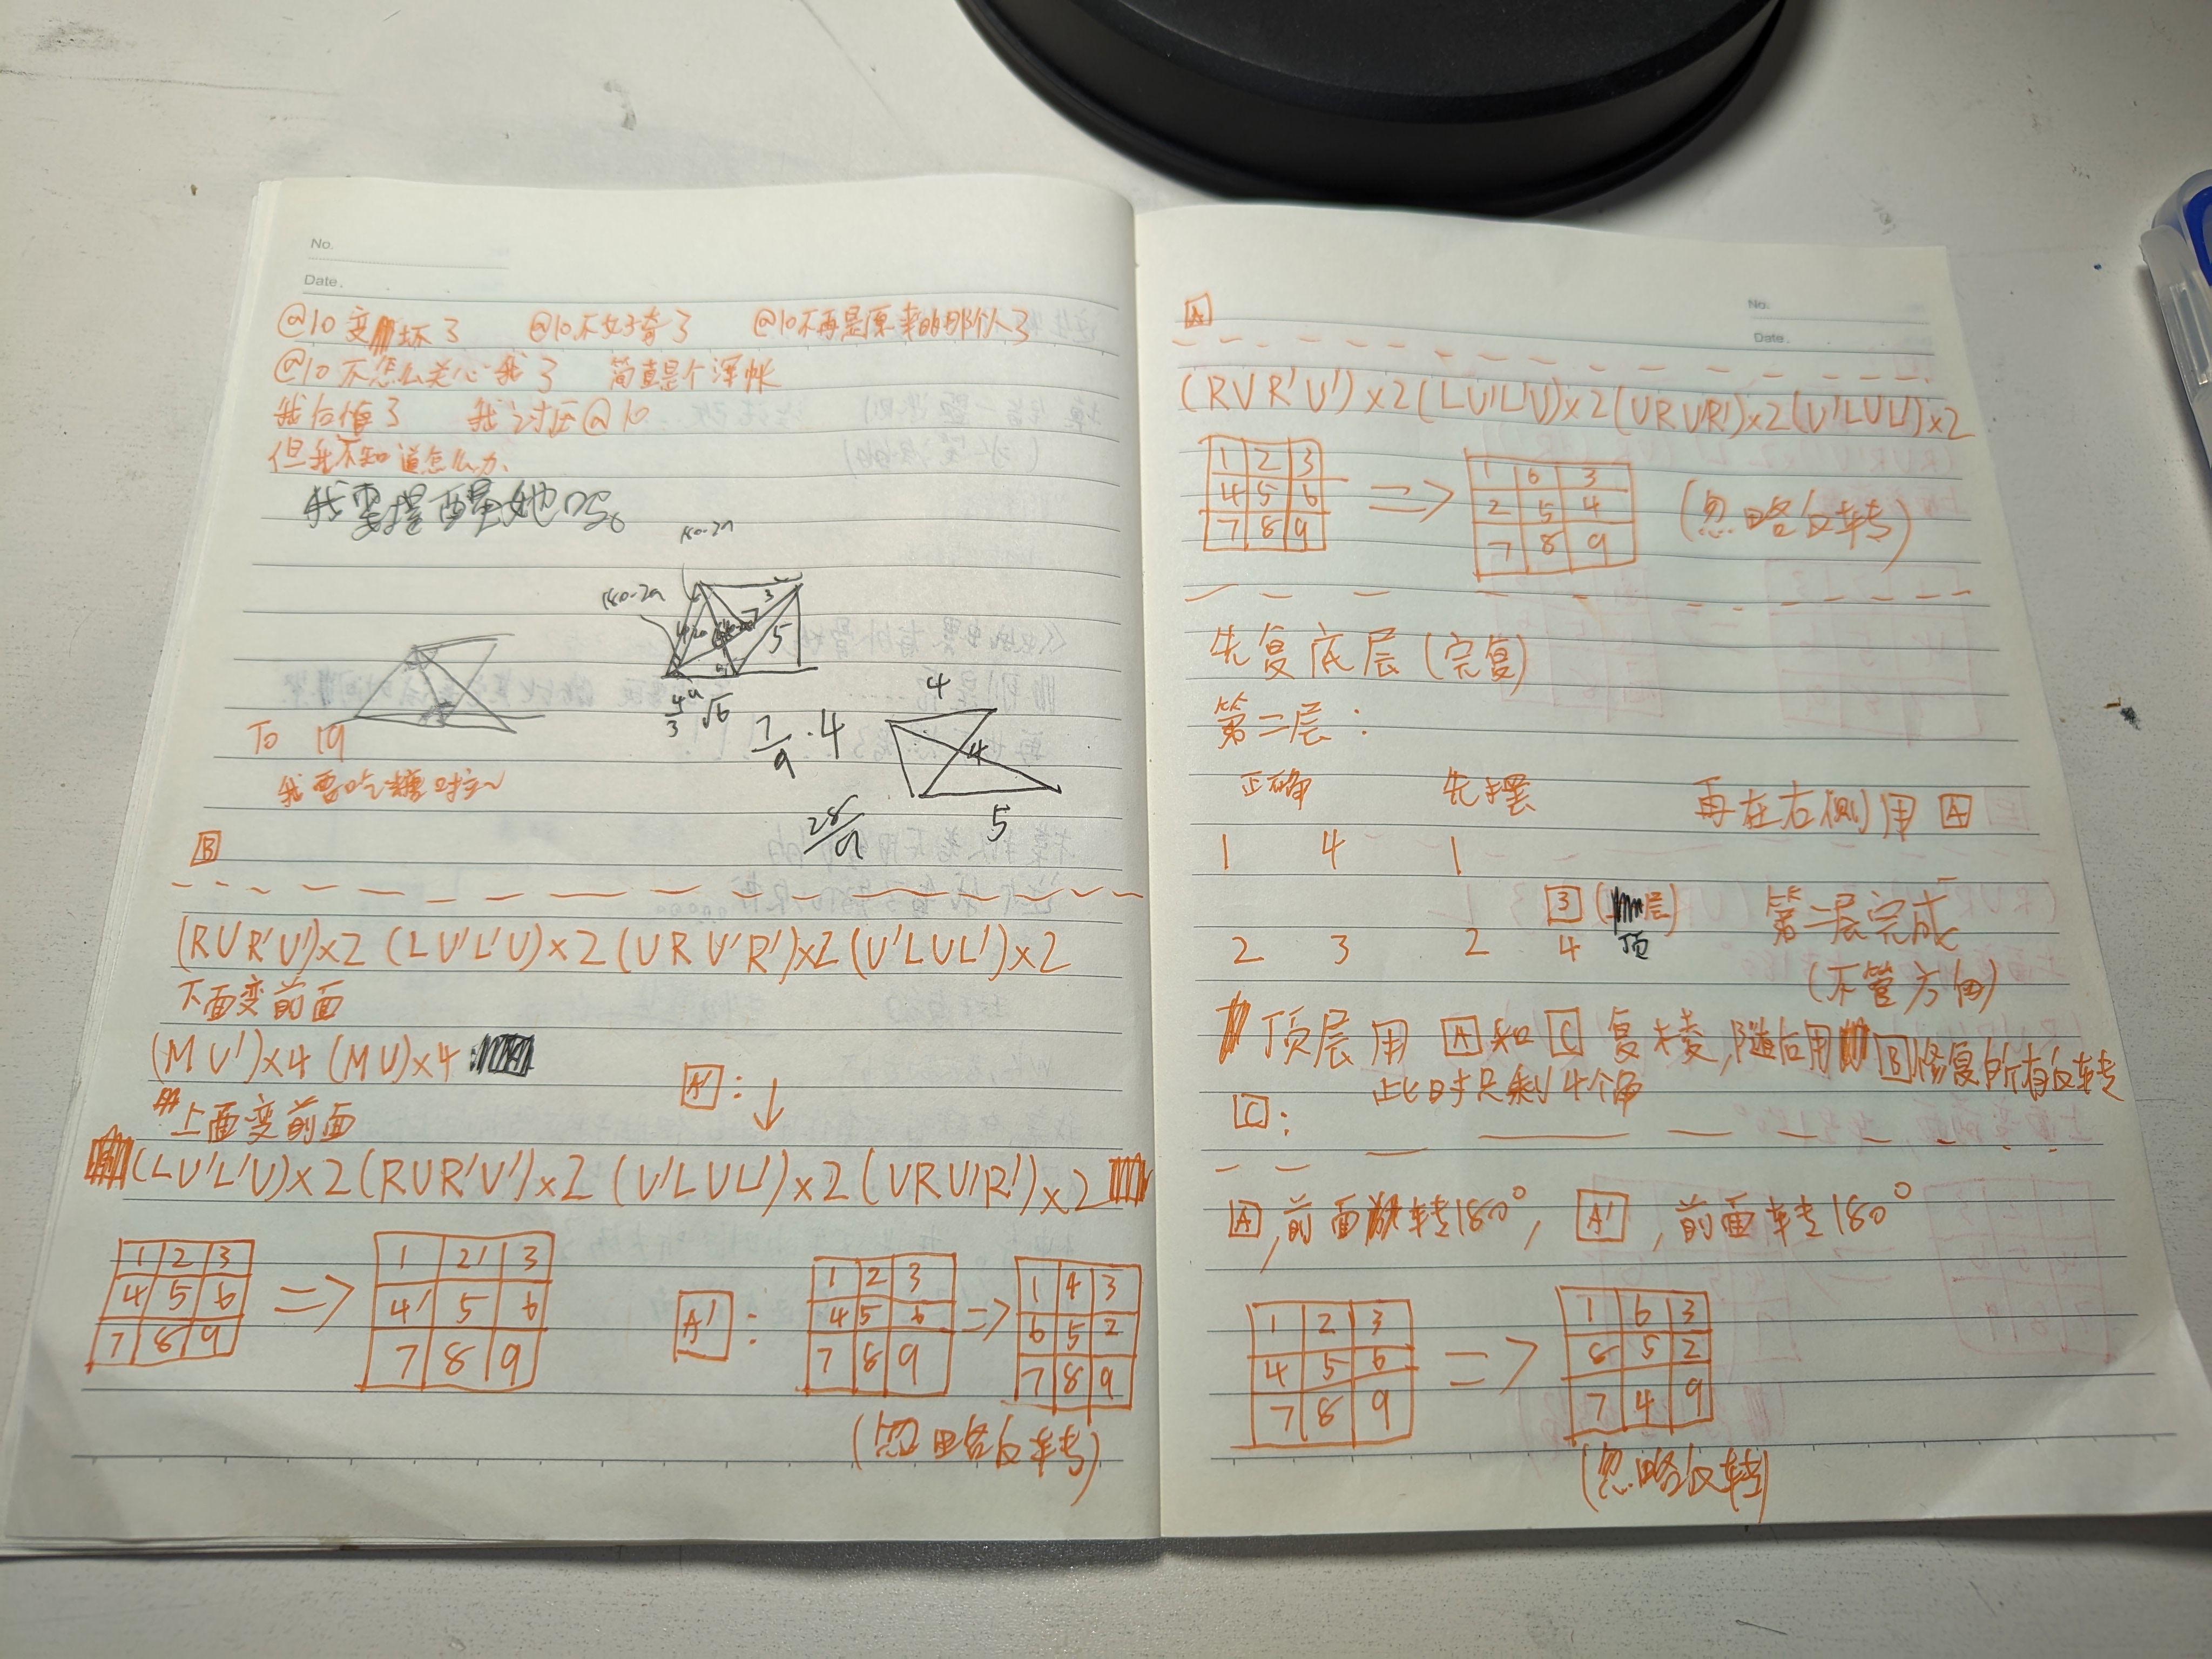 No.
Date.
@10变坏了 @10不好奇了 @10不再是原来的那个人了
@10不怎么关心我了 简直是个浑帐
我后悔了 我讨厌@10
但我不知道怎么办
我要提醒她吗。
180-2a
180-2a
3
5
4
a
4/3 √6
7/9 · 4
28/9
4
4
5
To 19
我要吃糖对拉~
B
(RUR'U')×2 (LU'L'U)×2 (URU'R')×2 (U'LUL')×2
下面变前面
(MU')×4 (MU)×4
上面变前面
A': ↓
(LU'L'U)×2 (RUR'U')×2 (U'LUL')×2 (URU'R')×2
1 2 3
4 5 6
7 8 9
=>
1 2' 3
4' 5 6
7 8 9
A':
1 2 3
4 5 6
7 8 9
=>
1 4 3
6 5 2
7 8 9
(忽略反转)
No.
Date.
A
(RUR'U')×2(LU'L'U)×2(URU'R')×2(U'LUL')×2
1 2 3
4 5 6
7 8 9
=>
1 6 3
2 5 4
7 8 9
(忽略反转)
先复底层(完复)
第二层:
正确 先摆 再在右侧用A
1 4 1
3 (层) 第二层完成
2 3 2 4 顶
(不管方向)
顶层用A和C复棱,随后用B修复所有反转
此时只剩4个角
C:
A,前面转180°, A', 前面转180°
1 2 3
4 5 6
7 8 9
=>
1 6 3
8 5 2
7 4 9
(忽略反转)